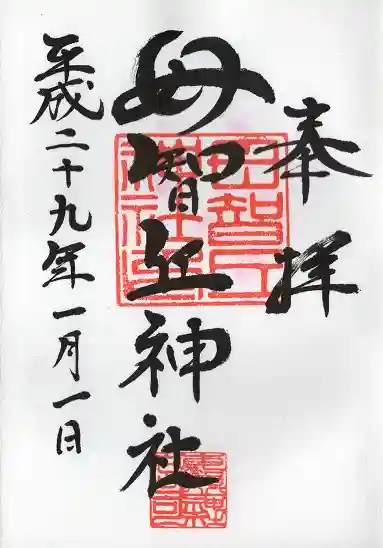 奉拝
母智丘神社
平成二十九年一月一日
母智丘
神社印